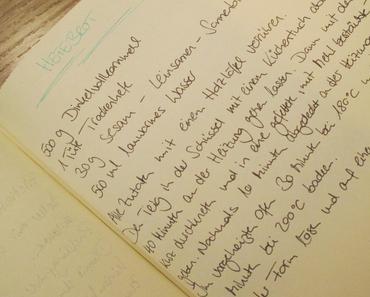 HEFEBROT
500 g Dinkelvollkornmehl
1 Tüte Trockenhefe
30 g Sesam - Leinsamen - Sonnenbl
500 ml lauwarmes Wasser
Alle Zutaten mit einem Holzlöffel verrühren.
Den Teig in der Schüssel mit einem Küchentuch ab
40 Minuten an der Heizung gehen lassen. Dann mit den
kurz durchkneten und in eine gefettete, mit Mehl bestäubte
geben. Nochmals 10 Minuten abgedeckt an der Heizung
Im vorgeheizten Ofen 30 Minuten bei 180°C
Minuten bei 200°C backen.
der Form lösen und auf eine